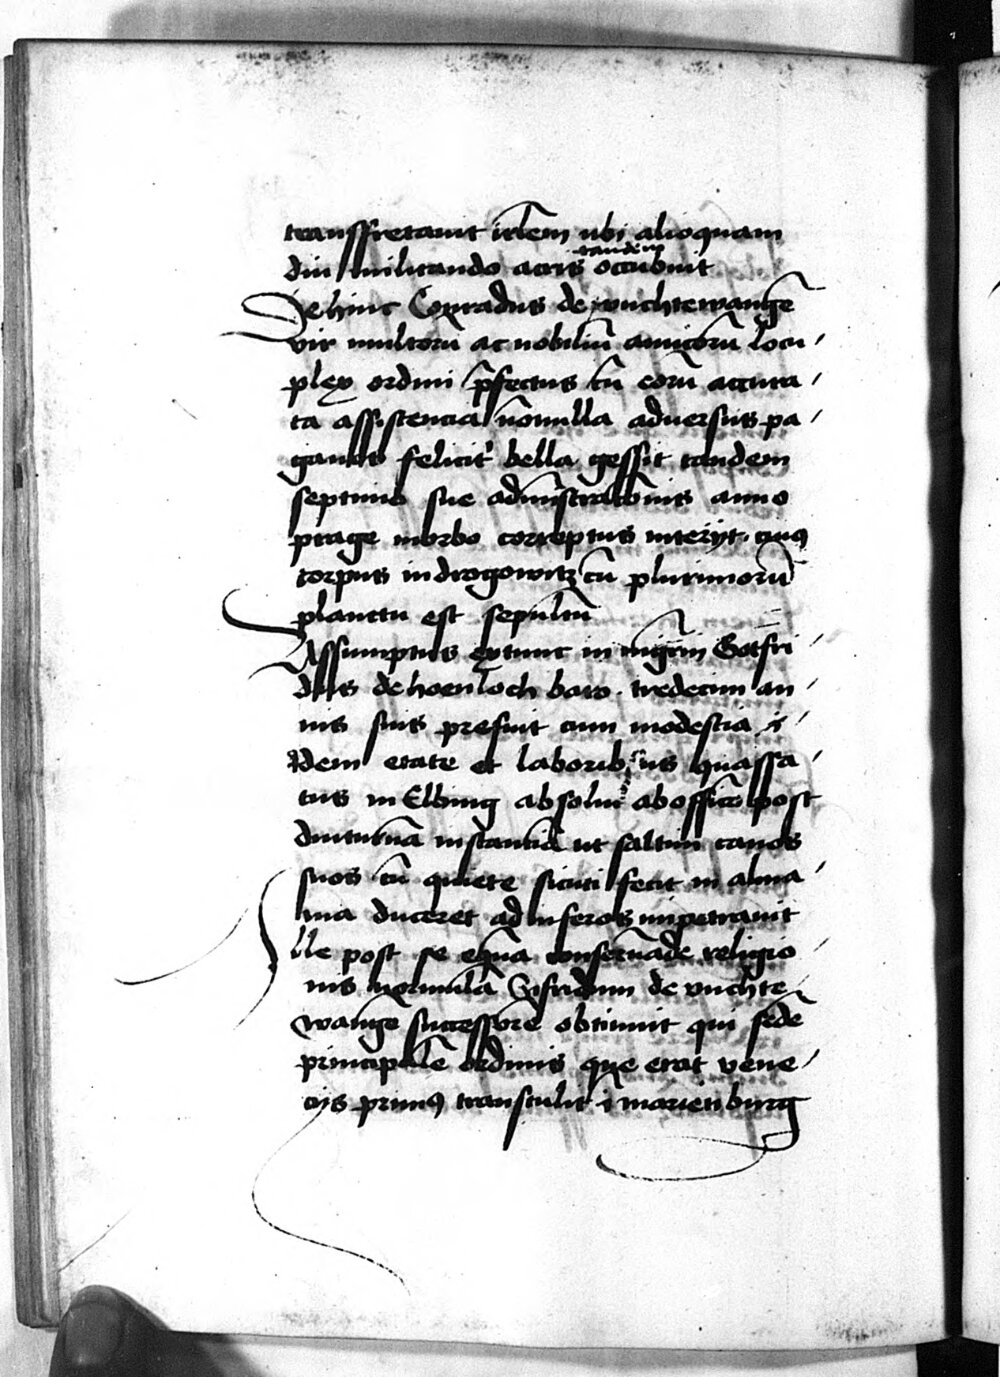 transfretavit irlem ubi alioquam
diu militando acris tandem occubuit
Dehinc Conradus de vuchtewange
vir multoru ac nobiliu amicoru locu
plex ordini pfectus cu eoru accura
ta assistencia nonulla adversus pa
ganos felicit bella gessit tandem
septimo sue administracionis anno
prage morbo correptus interijt cuius
corpus in drogowitz cu plurimoru
planctu est sepultu
Assumptus extunc in mgrm Gotfri
dus de hoenloch baro tredecim an
nis suis prefuit cum modestia i
dem etate et laborib iis quassa
tus in Elbing absolui ab officio post
diuturna instancia ut saltim canos
suos cu quiete sicuti fecit in alma
nia duceret ad inferos impetravit
Ille post se equa conservade religio
nis normula Sifridum de vuchte
wange successore obtinuit qui sede
principale ordinis que erat vene
cijs primus transtulit i marienburg